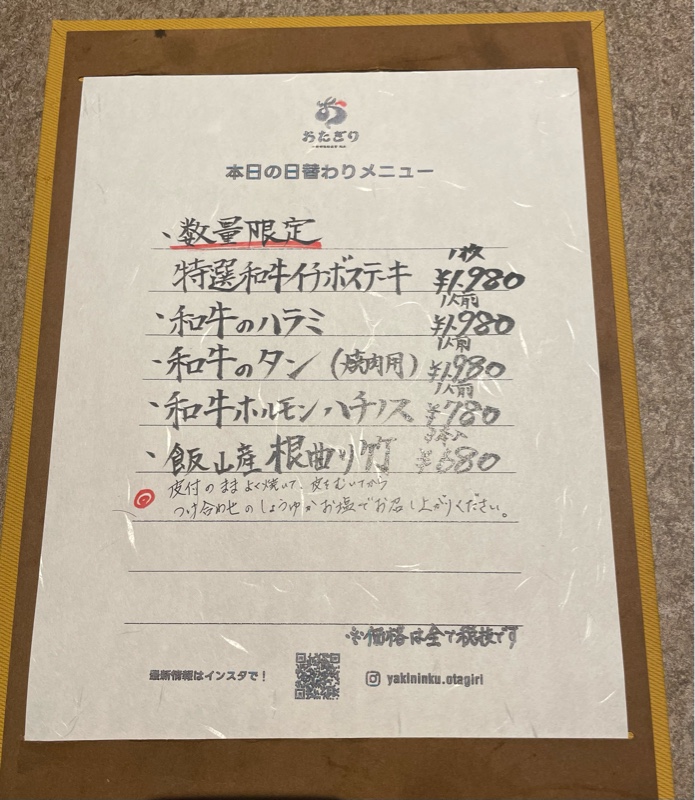 おたぎり
本日の日替わりメニュー
・数量限定
1枚
特選和牛イチボステーキ ¥1,980
1人前
・和牛のハラミ ¥1,980
1人前
・和牛のタン(焼肉用) ¥1,980
1人前
・和牛ホルモン ハチノス ¥780
・飯山産根曲り竹 ¥680
皮付のままよく焼いて、皮をむいてから
つけ合わせのしょうゆかお塩でお召し上がりください。
※価格は全て税抜です
最新情報はインスタで!
yakininku.otagiri